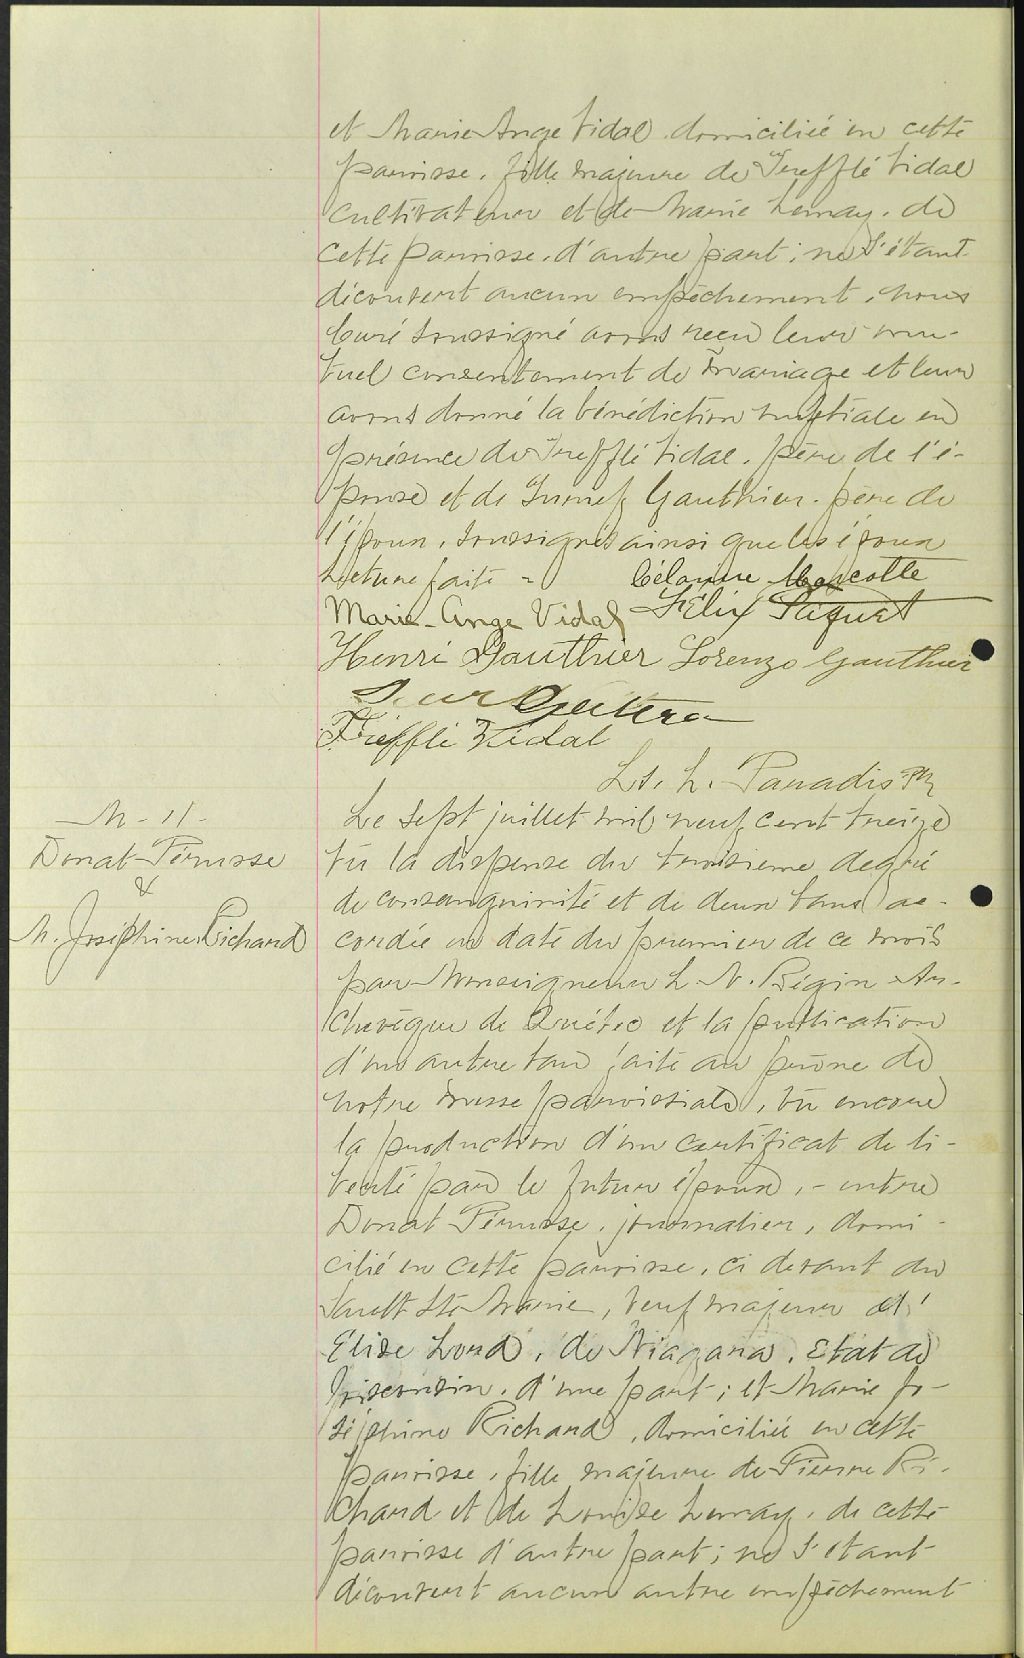 et Marie Ange Vidal domiciliée en cette
paroisse, fille majeure de Trefflé Vidal
cultivateur et de Marie Lemay, de
cette paroisse, d'autre part; ne s'étant
découvert aucun empêchement, nous
Curé soussigné avons reçu leur mu-
tuel consentement de mariage et leur
avons donné la bénédiction nuptiale en
présence de Trefflé Vidal, père de l'é-
pouse et de Gauthier, père de
l'époux, soussignés ainsi que les époux
Lecture faite =
Marcotte
Marie-Ange Vidal
Félix Paquet
Henri Gauthier Lorenzo Gauthier
Trefflé Vidal
Ls. h. Paradis Ptr
M - 11 -
Donat Pérusse
&
M. Joséphine Richard
Le sept juillet mil neuf cent treize
vu la dispense du troisieme degré
de consanguinité et de deux bans ac-
cordée en date du premier de ce mois
par Monseigneur L. N. Bégin Ar-
chevêque de Québec et la publication
d'un autre ban faite au prône de
notre messe paroissiale, vu encore
la production d'un certificat de li-
berté par le futur époux, - entre
Donat Pérusse, journalier, domi-
cilié en cette paroisse, ci devant du
Sault Ste Marie, veuf majeur d'
Elise Lord, de Niagara, Etat de
Wisconsin, d'une part; et Marie Jo-
séphine Richard, domiciliée en cette
paroisse, fille majeure de Pierre Ri-
chard et de Louise Lemay, de cette
paroisse d'autre part; ne s'étant
découvert aucun autre empêchement